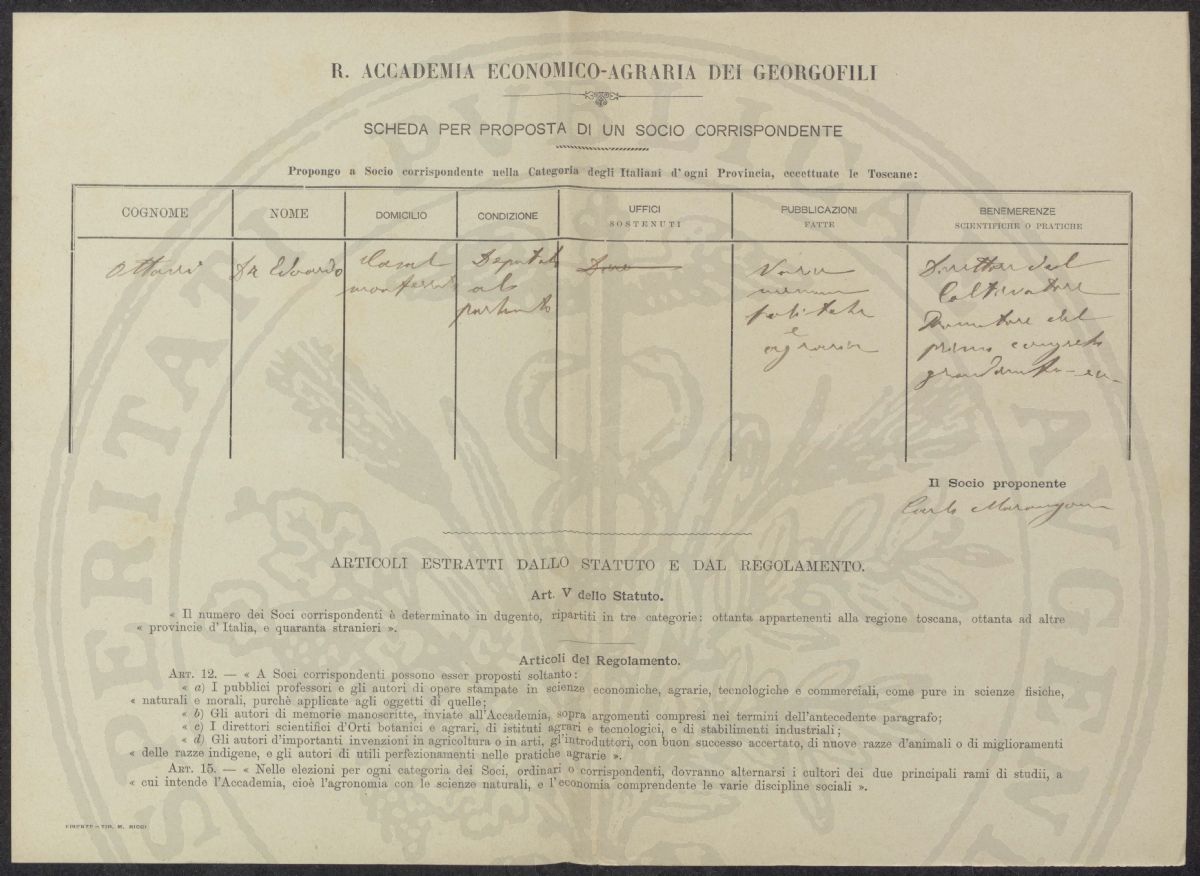 R. ACCADEMIA ECONOMICO-AGRARIA DEI GEORGOFILI
SCHEDA PER PROPOSTA DI UN SOCIO CORRISPONDENTE
Propongo a Socio corrispondente nella Categoria degli Italiani d'ogni Provincia, eccettuate le Toscane:
COGNOME NOME DOMICILIO CONDIZIONE UFFICI SOSTENUTI PUBBLICAZIONI FATTE BENEMERENZE SCIENTIFICHE O PRATICHE
Ottavi
Dr Edoardo
Casal
monferrato
Deputato
al
parlamento
Varie
memorie
politiche
e
agrarie
Direttore del
Coltivatore
Promotore del
primo congresso
Il Socio proponente
Carlo Marangoni
ARTICOLI ESTRATTI DALLO STATUTO E DAL REGOLAMENTO.
Art. V dello Statuto.
« Il numero dei Soci corrispondenti è determinato in dugento, ripartiti in tre categorie: ottanta appartenenti alla regione toscana, ottanta ad altre
« provincie d'Italia, e quaranta stranieri ».
Articoli del Regolamento.
ART. 12. — « A Soci corrispondenti possono esser proposti soltanto:
« a) I pubblici professori e gli autori di opere stampate in scienze economiche, agrarie, tecnologiche e commerciali, come pure in scienze fisiche,
« naturali e morali, purchè applicate agli oggetti di quelle;
« b) Gli autori di memorie manoscritte, inviate all'Accademia, sopra argomenti compresi nei termini dell'antecedente paragrafo;
« c) I direttori scientifici d'Orti botanici e agrari, di istituti agrari e tecnologici, e di stabilimenti industriali;
« d) Gli autori d'importanti invenzioni in agricoltura o in arti, gl'introduttori, con buon successo accertato, di nuove razze d'animali o di miglioramenti
« delle razze indigene, e gli autori di utili perfezionamenti nelle pratiche agrarie ».
ART. 15. — « Nelle elezioni per ogni categoria dei Soci, ordinari o corrispondenti, dovranno alternarsi i cultori dei due principali rami di studii, a
« cui intende l'Accademia, cioè l'agronomia con le scienze naturali, e l'economia comprendente le varie discipline sociali ».
FIRENZE – TIP. M. RICCI
PROSPERITATI PUBLICAE AVGENDAE